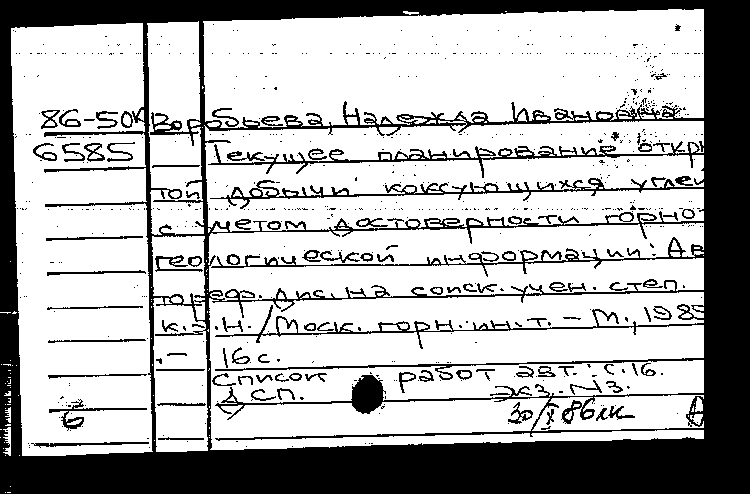 86-50к Воробьева, Надежда Ивановна
6585 Текущее планирование откры
той добычи коксующихся углей
с учетом достоверности горно-
геологической информации: Ав
тореф. дис. на соиск. учен. степ.
к.э.н. / Моск. горн. ин.т. - М., 1985
.- 16 с.
Список работ авт.: с. 16.
ДСП. Экз. N3.
6 30/X 86